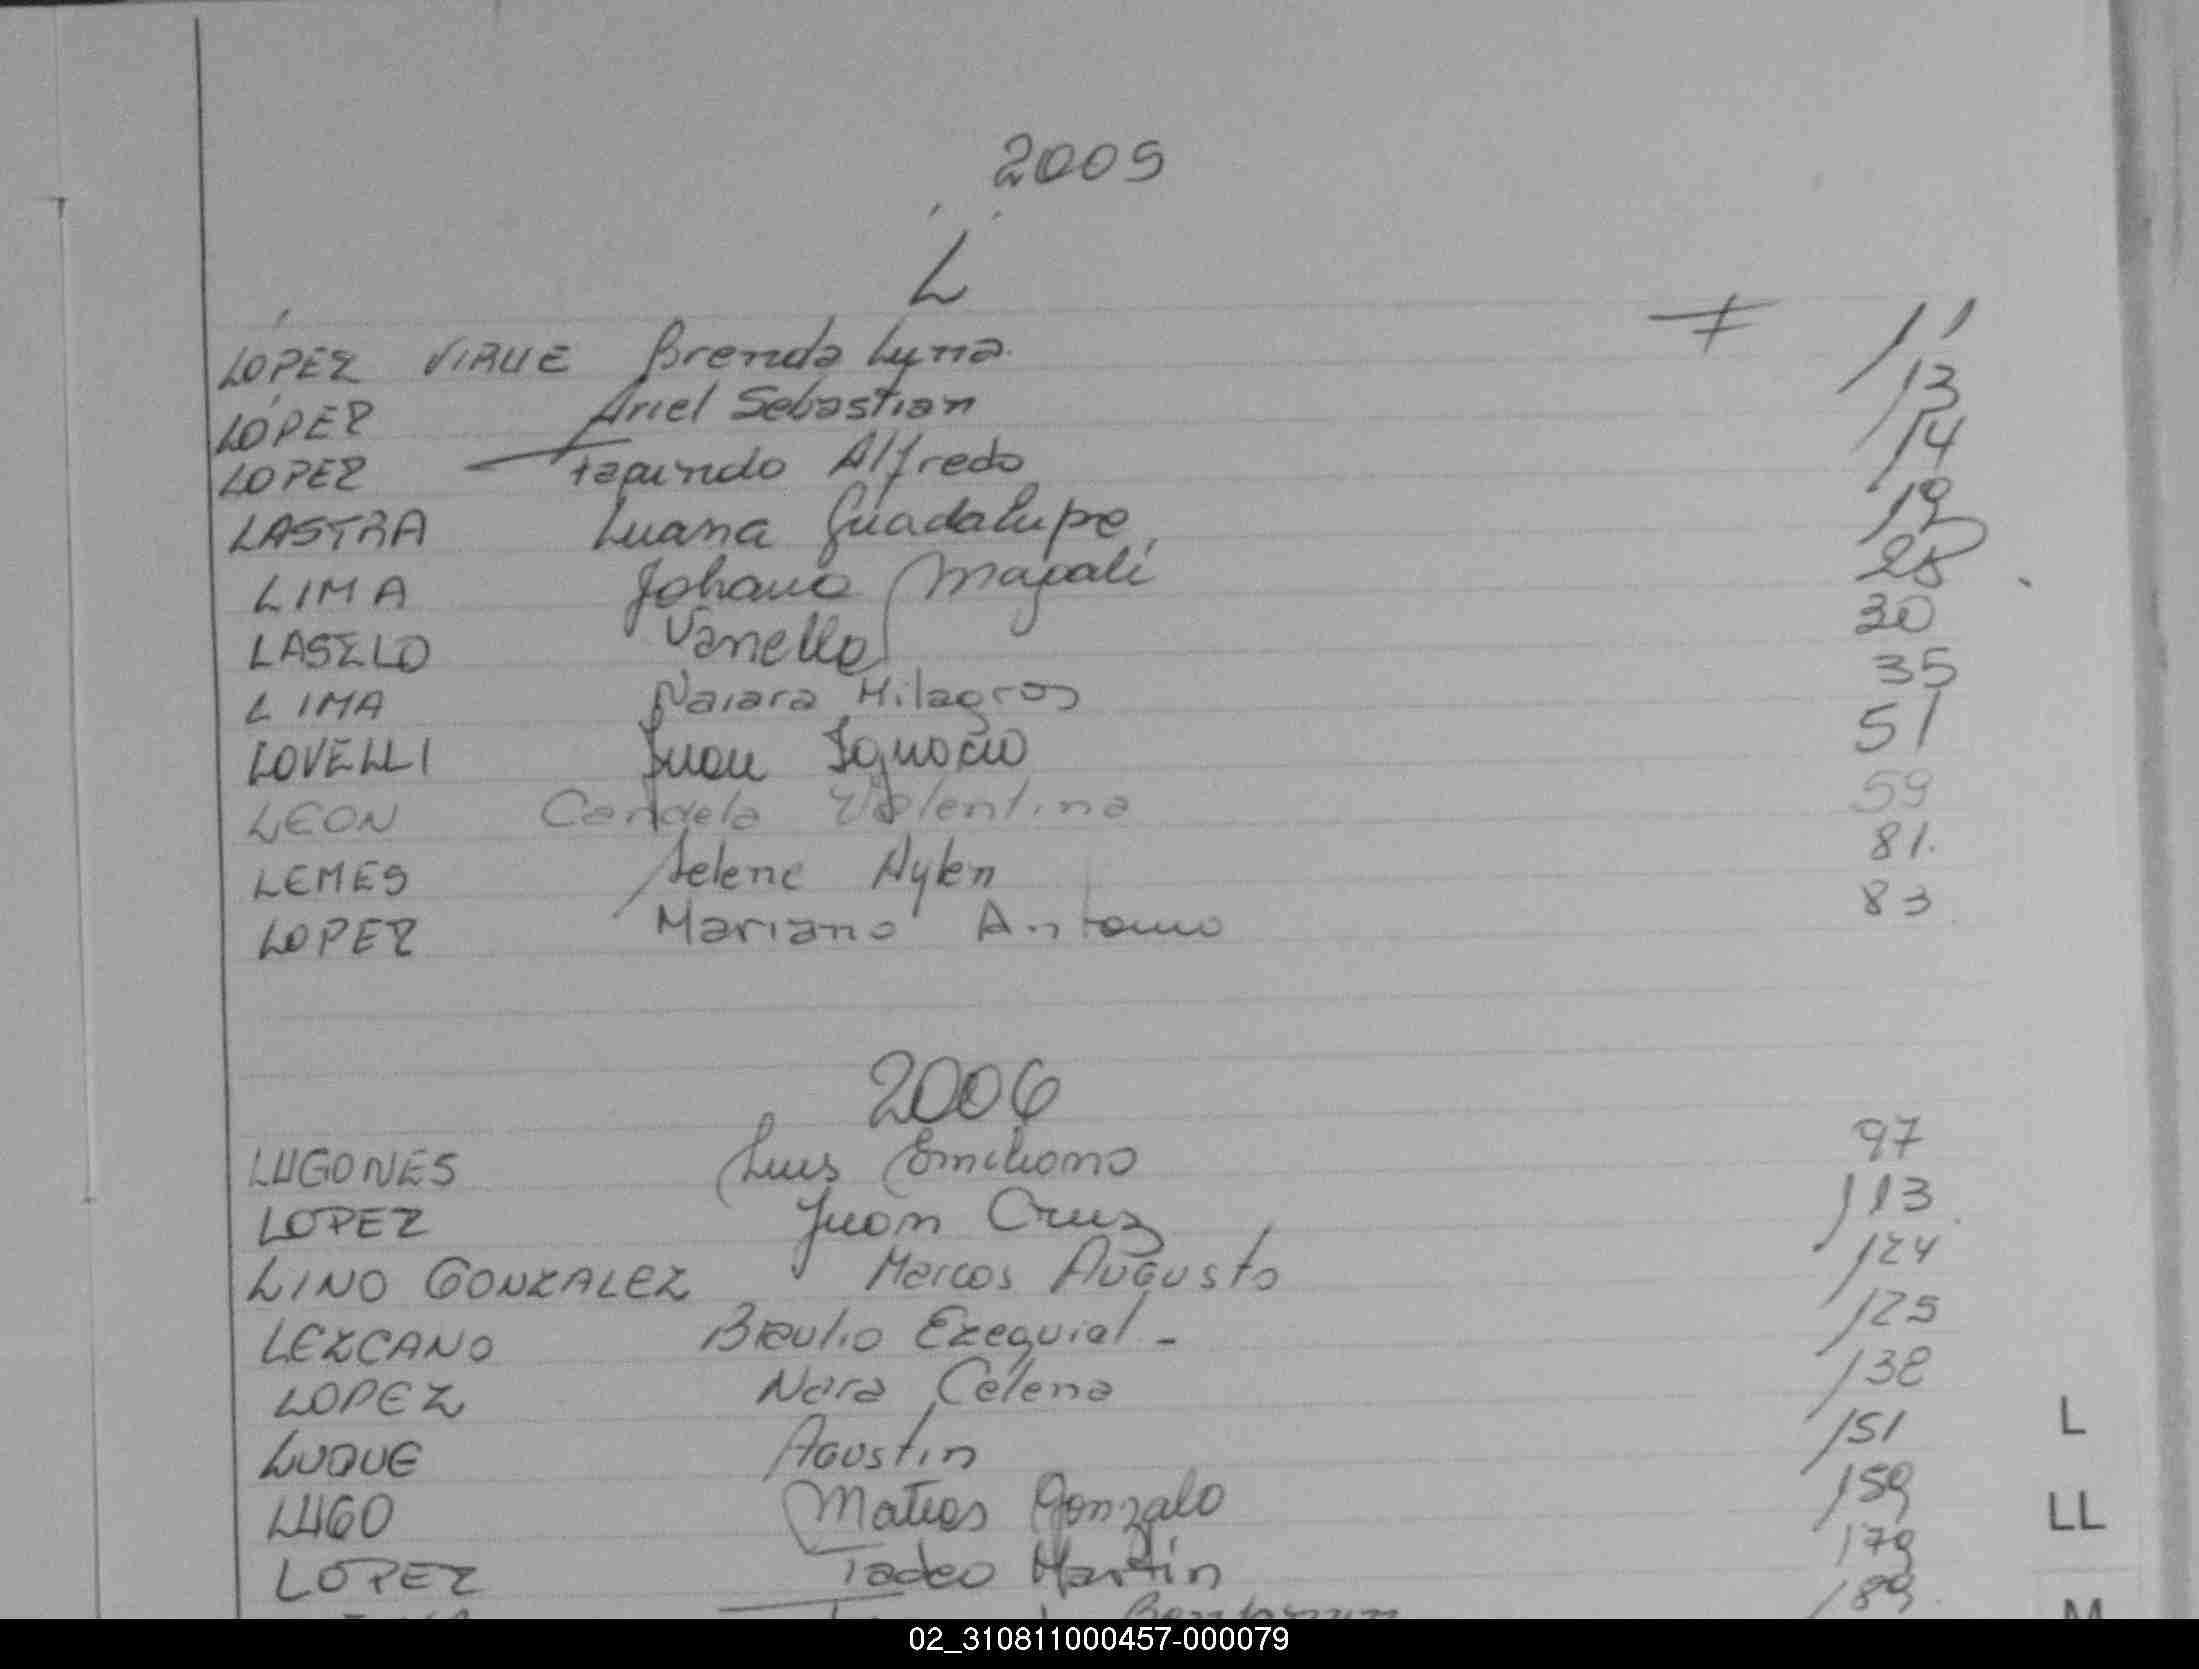 2005
L
LOPEZ VIRUE Brenda Luna. 11
LÓPEZ Ariel Sebastian 13
LOPEZ Facundo Alfredo 14
LASTRA Luana Guadalupe 19
LIMA Johana Magalí 25
LASZLO Vanella 30
LIMA Naiara Milagros 35
LOVELLI Juan Ignacio 51
LEON Candela Valentina 59
LEMES Selene Aylen 81.
LOPEZ Mariano Antonio 83
2006
LUGONES Luis Emiliano 97
LOPEZ Juan Cruz 113
LINO GONZALEZ Marcos Augusto 124
LEZCANO Braulio Ezequiel - 125
LOPEZ Nara Celena 138
LUQUE Agustin 151
L
LUGO Matias Gonzalo 159
LL
LOPEZ Tadeo Martín 179
189
M
02_310811000457-000079